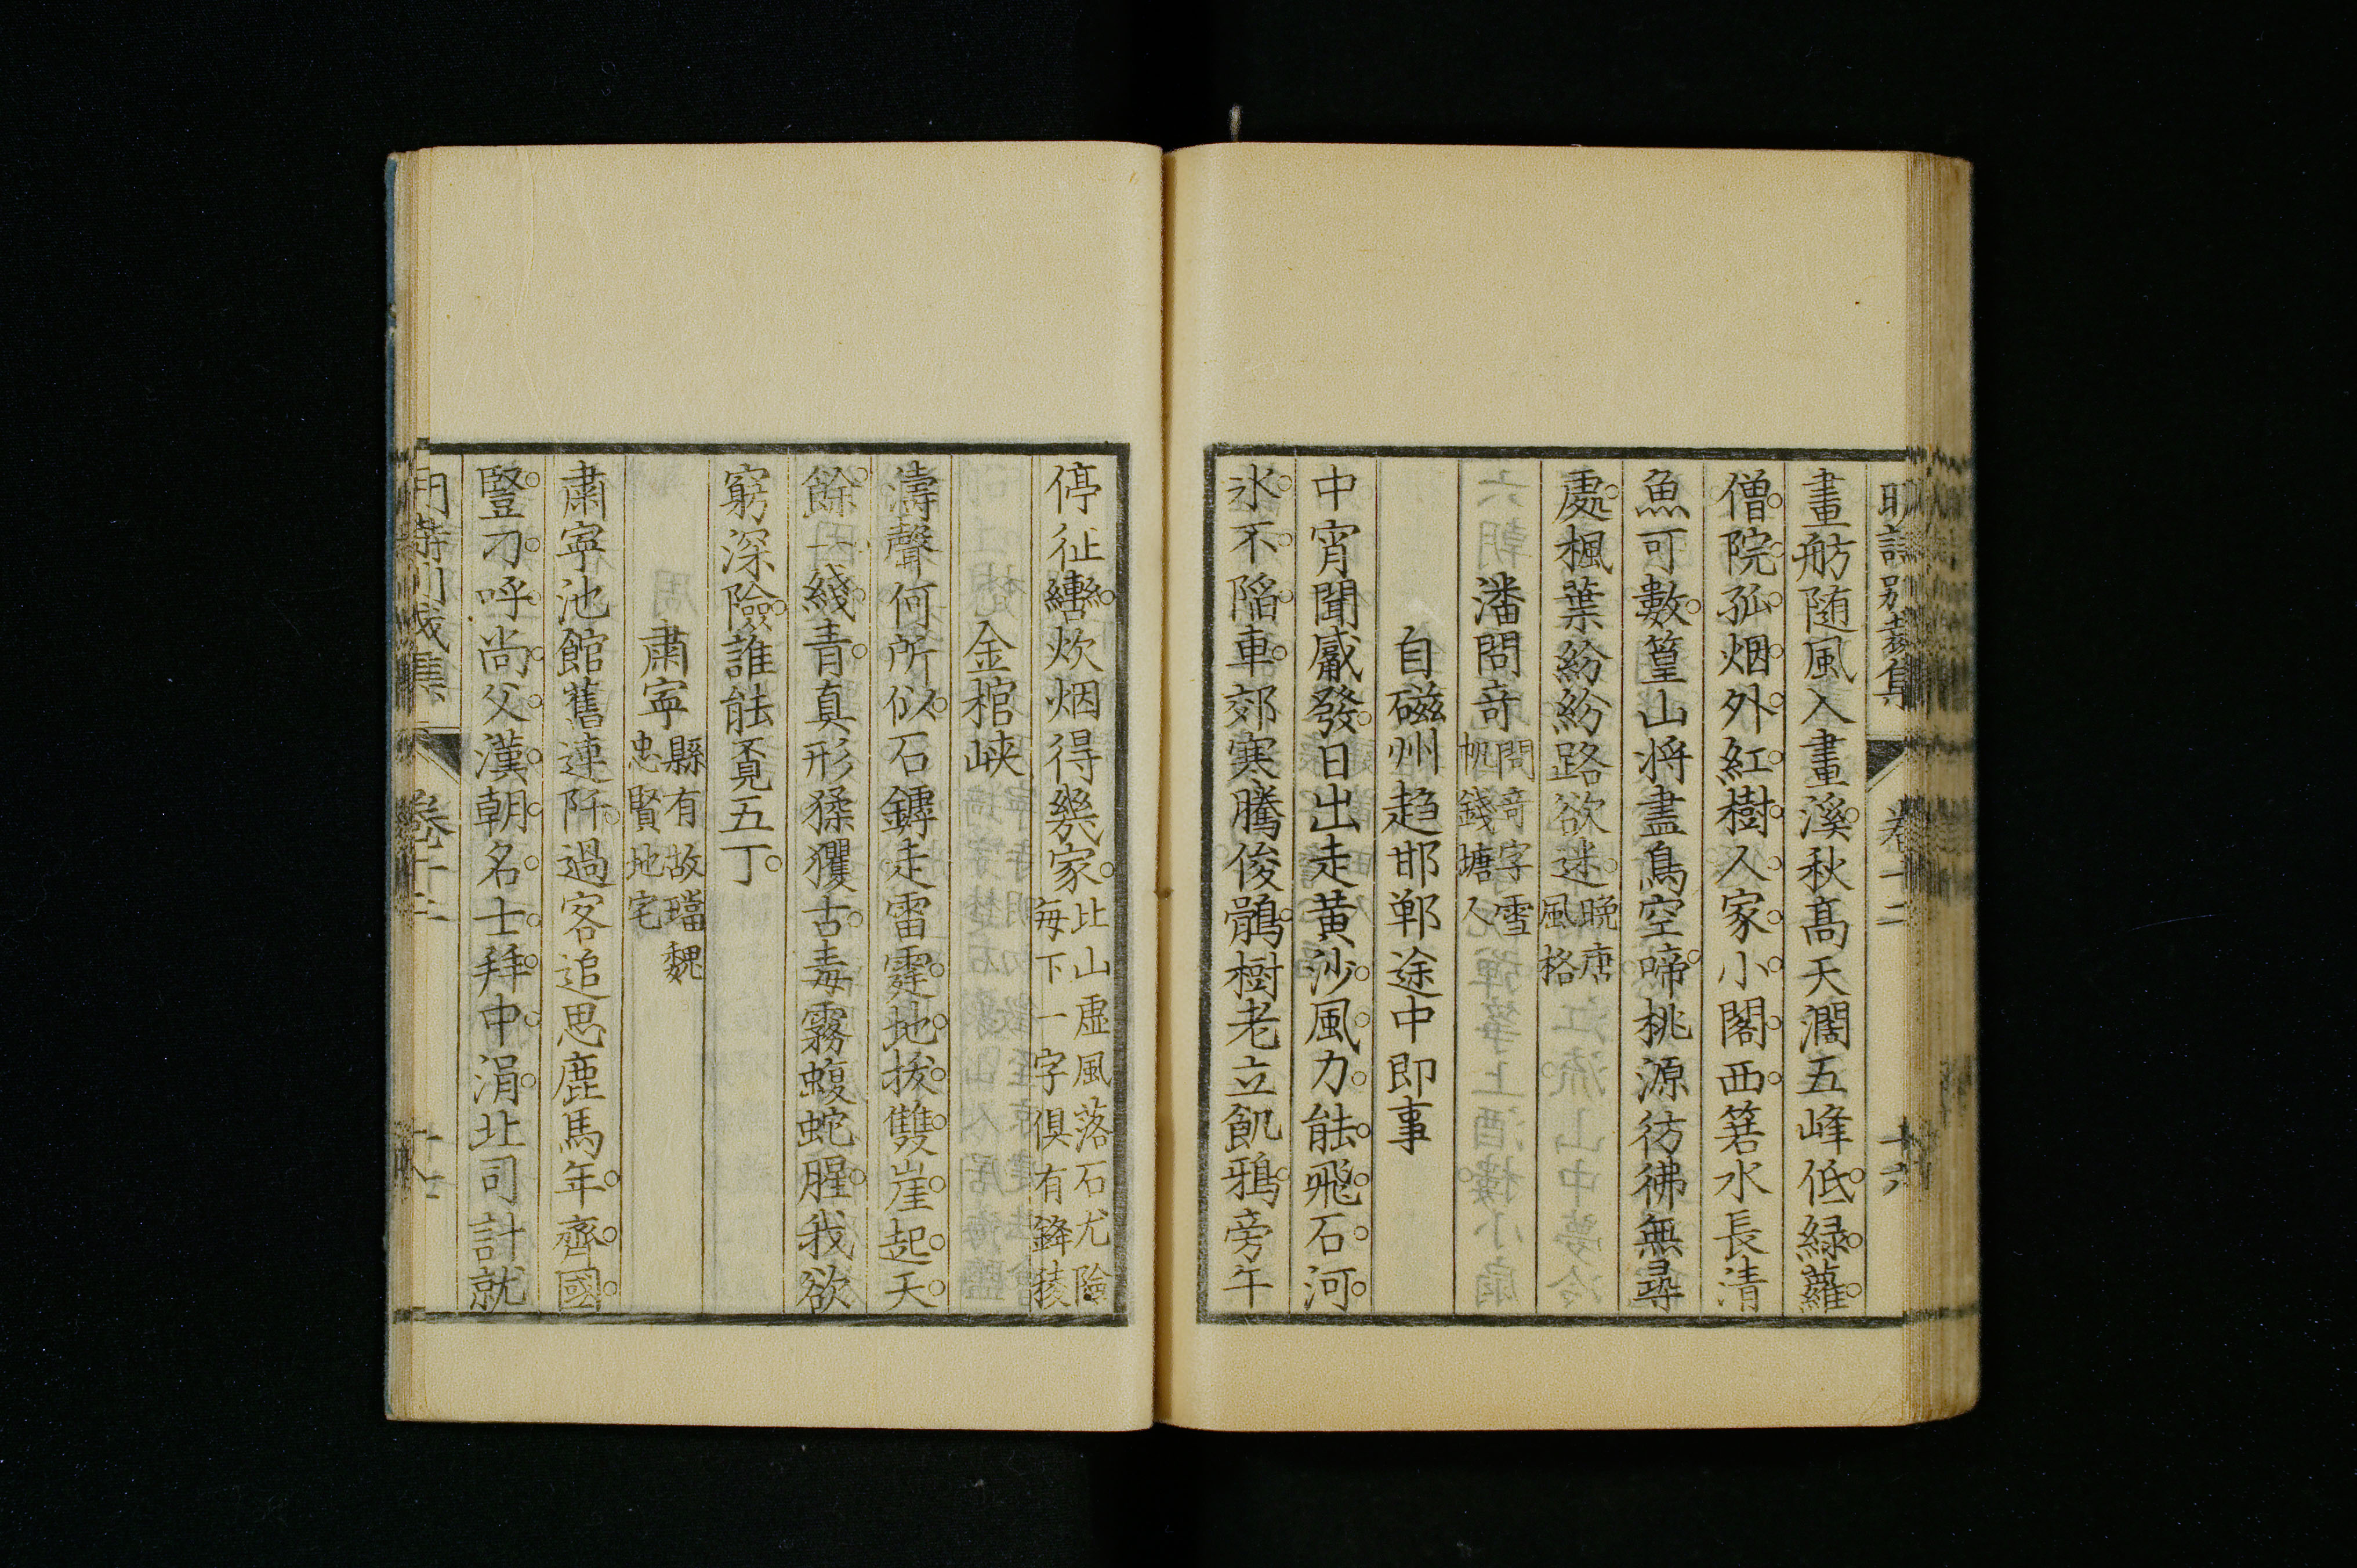 明詩別裁集 卷十二 十六
畫舫随風入畫溪秋髙天濶五峰低緑蘿
僧院孤烟外紅樹人家小閣西箬水長清
魚可數篁山将盡鳥空啼桃源彷彿無尋
處楓葉紛紛路欲迷晩唐風格
潘問竒問竒字雪帆錢塘人
自磁州趋邯郸途中即事
中宵聞觱發日出走黄沙風力能飛石河
氷不陷車郊寒騰俊鶻樹老立飢鴉旁午
停征轡炊烟得幾家比山虚風落石尤險每下一字俱有鋒稜
金棺峡
濤聲何所似石鏬走雷霆地抜雙崖起天
餘一綫青真形猱玃古毒霧蝮蛇腥我欲
窮深險誰能覔五丁
肅寧縣有故璫魏忠賢地宅
肅寧池館舊連阡過客追思鹿馬年齊國
豎刁呼尚父漢朝名士拜中涓北司計就